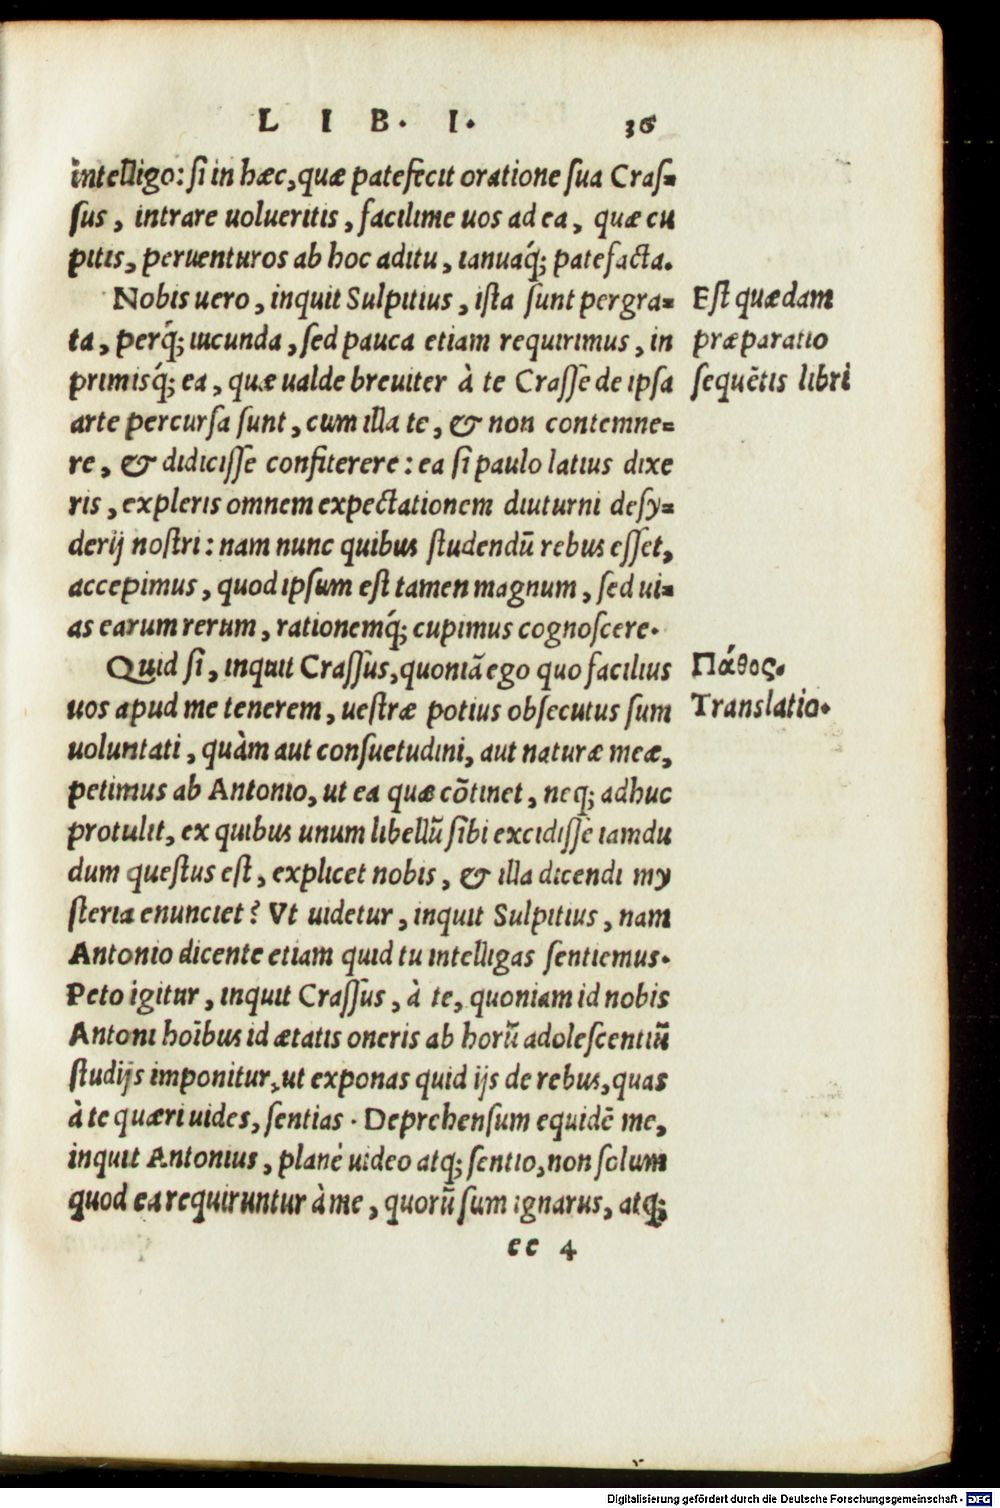 LIB. I. 36
intelligo: si in hæc, quæ patefecit oratione sua Cras=
sus, intrare uolueritis, facilime uos ad ea, quæ cu
pitis, peruenturos ab hoc aditu, ianuaq́; patefacta.
Nobis uero, inquit Sulpitius, ista sunt pergra=
ta, perq́; iucunda, sed pauca etiam requirimus, in
primisq́; ea, quæ ualde breuiter à te Crasse de ipsa
arte percursa sunt, cum illa te, & non contemne=
re, & didicisse confiterere: ea si paulo latius dixe
ris, expleris omnem expectationem diuturni desy=
derij nostri: nam nunc quibus studendū rebus esset,
accepimus, quod ipsum est tamen magnum, sed ui=
as earum rerum, rationemq́; cupimus cognoscere.
Quid si, inquit Crassus, quoniā ego quo facilius
uos apud me tenerem, uestræ potius obsecutus sum
uoluntati, quàm aut consuetudini, aut naturæ meæ,
petimus ab Antonio, ut ea quæ cōtinet, neq; adhuc
protulit, ex quibus unum libellū sibi excidisse iamdu
dum questus est, explicet nobis, & illa dicendi my
steria enunciet? Vt uidetur, inquit Sulpitius, nam
Antonio dicente etiam quid tu intelligas sentiemus.
Peto igitur, inquit Crassus, à te, quoniam id nobis
Antoni hoībus id ætatis oneris ab horū adolescentiū
studijs imponitur, ut exponas quid ijs de rebus, quas
à te quæri uides, sentias. Deprehensum equidē me,
inquit Antonius, planè uideo atq; sentio, non solum
quod ea requiruntur à me, quorū sum ignarus, atq;
ee 4
Est quædam
præparatio
sequētis libri
Πάθος.
Translatio.
Digitalisierung gefördert durch die Deutsche Forschungsgemeinschaft - DFG